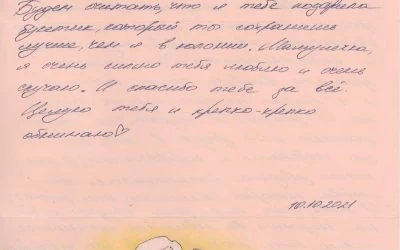 Будем считать, что я тебе подарила
букетик, который ты сохранишь
лучше, чем я в колонии. Мамулечка,
я очень сильно тебя люблю и очень
скучаю. И спасибо тебе за всё.
Целую тебя и крепко-крепко
обнимаю♡
10.10.2021